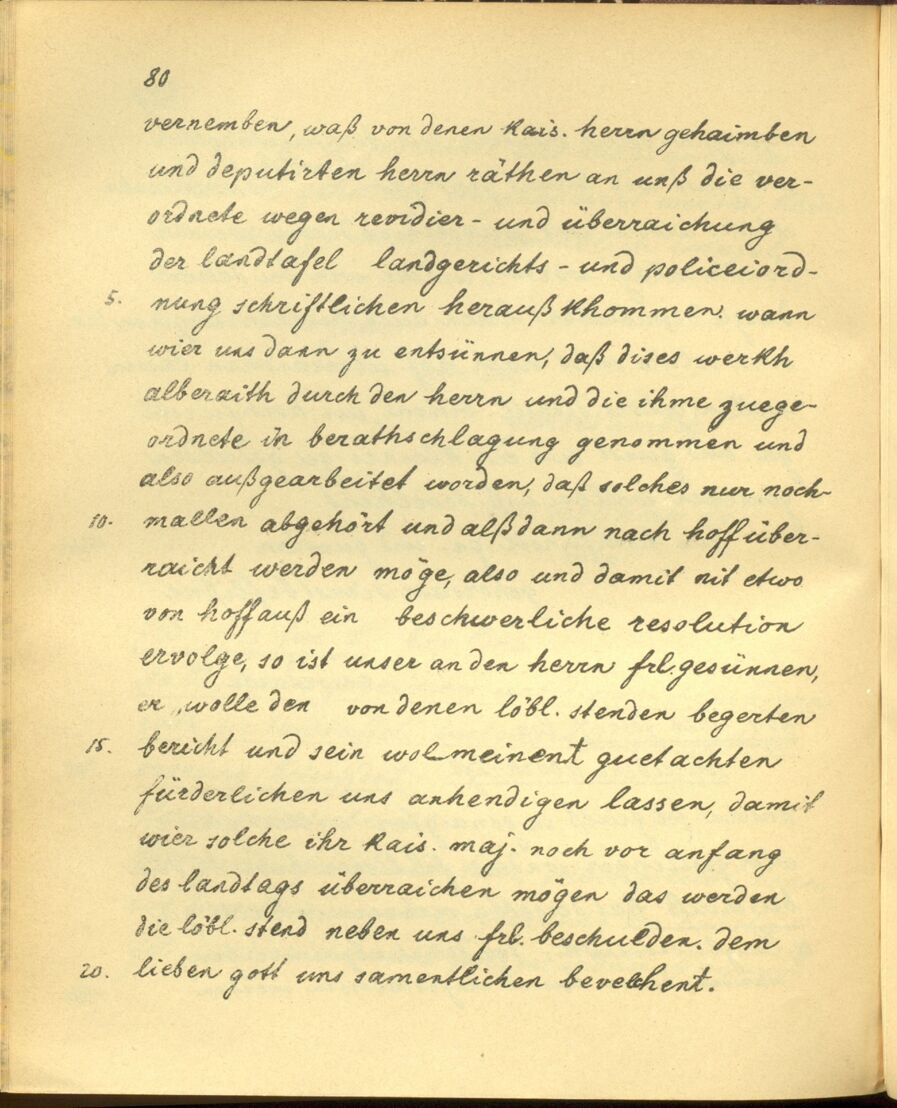 80
vernemben, waß von denen kais. herrn gehaimben
und deputirten herrn räthen an unß die ver-
ordnete wegen revidier- und überraichung
der landtafel landgerichts- und policeiord-
5. nung schriftlichen herauß khommen. wann
wier uns dann zu entsünnen, daß dises werkh
alberaith durch den herrn und die ihme zuege-
ordnete in berathschlagung genommen und
also außgearbeitet worden, daß solches nur noch-
10. mallen abgehört und alßdann nach hoff über-
raicht werden möge, also und damit nit etwo
von hoff auß ein beschwerliche resolution
ervolge, so ist unser an den herrn frl. gesünnen,
er wolle den von denen löbl. stenden begerten
15. bericht und sein wolmeinent guetachten
fürderlichen uns anhendigen lassen, damit
wier solche ihr kais. maj. noch vor anfang
des landtags überraichen mögen das werden
die löbl. stend neben uns frl. beschulden. dem
20. lieben gott uns samentlichen bevelhent.